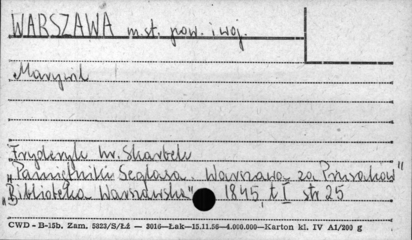 WARSZAWA m. st. pow. i woj.
Marywil
Fryderyk hr. Skarbek
"Pamiętniki Seglasa. Warszawa za Prusaków"
"Biblioteka Warszawska" 1845, t I str 25
CWD - B-15b. Zam. 5823/S/Łź — 3016—Łak—15.11.56—4.000.000—Karton kl. IV A1/200 g